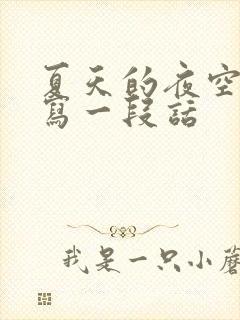 夏天的夜空
寫一段話
我是一只小蘑